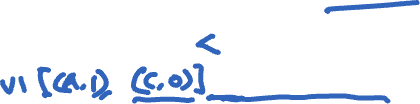 <
v1 [(A,1), (C,0)]